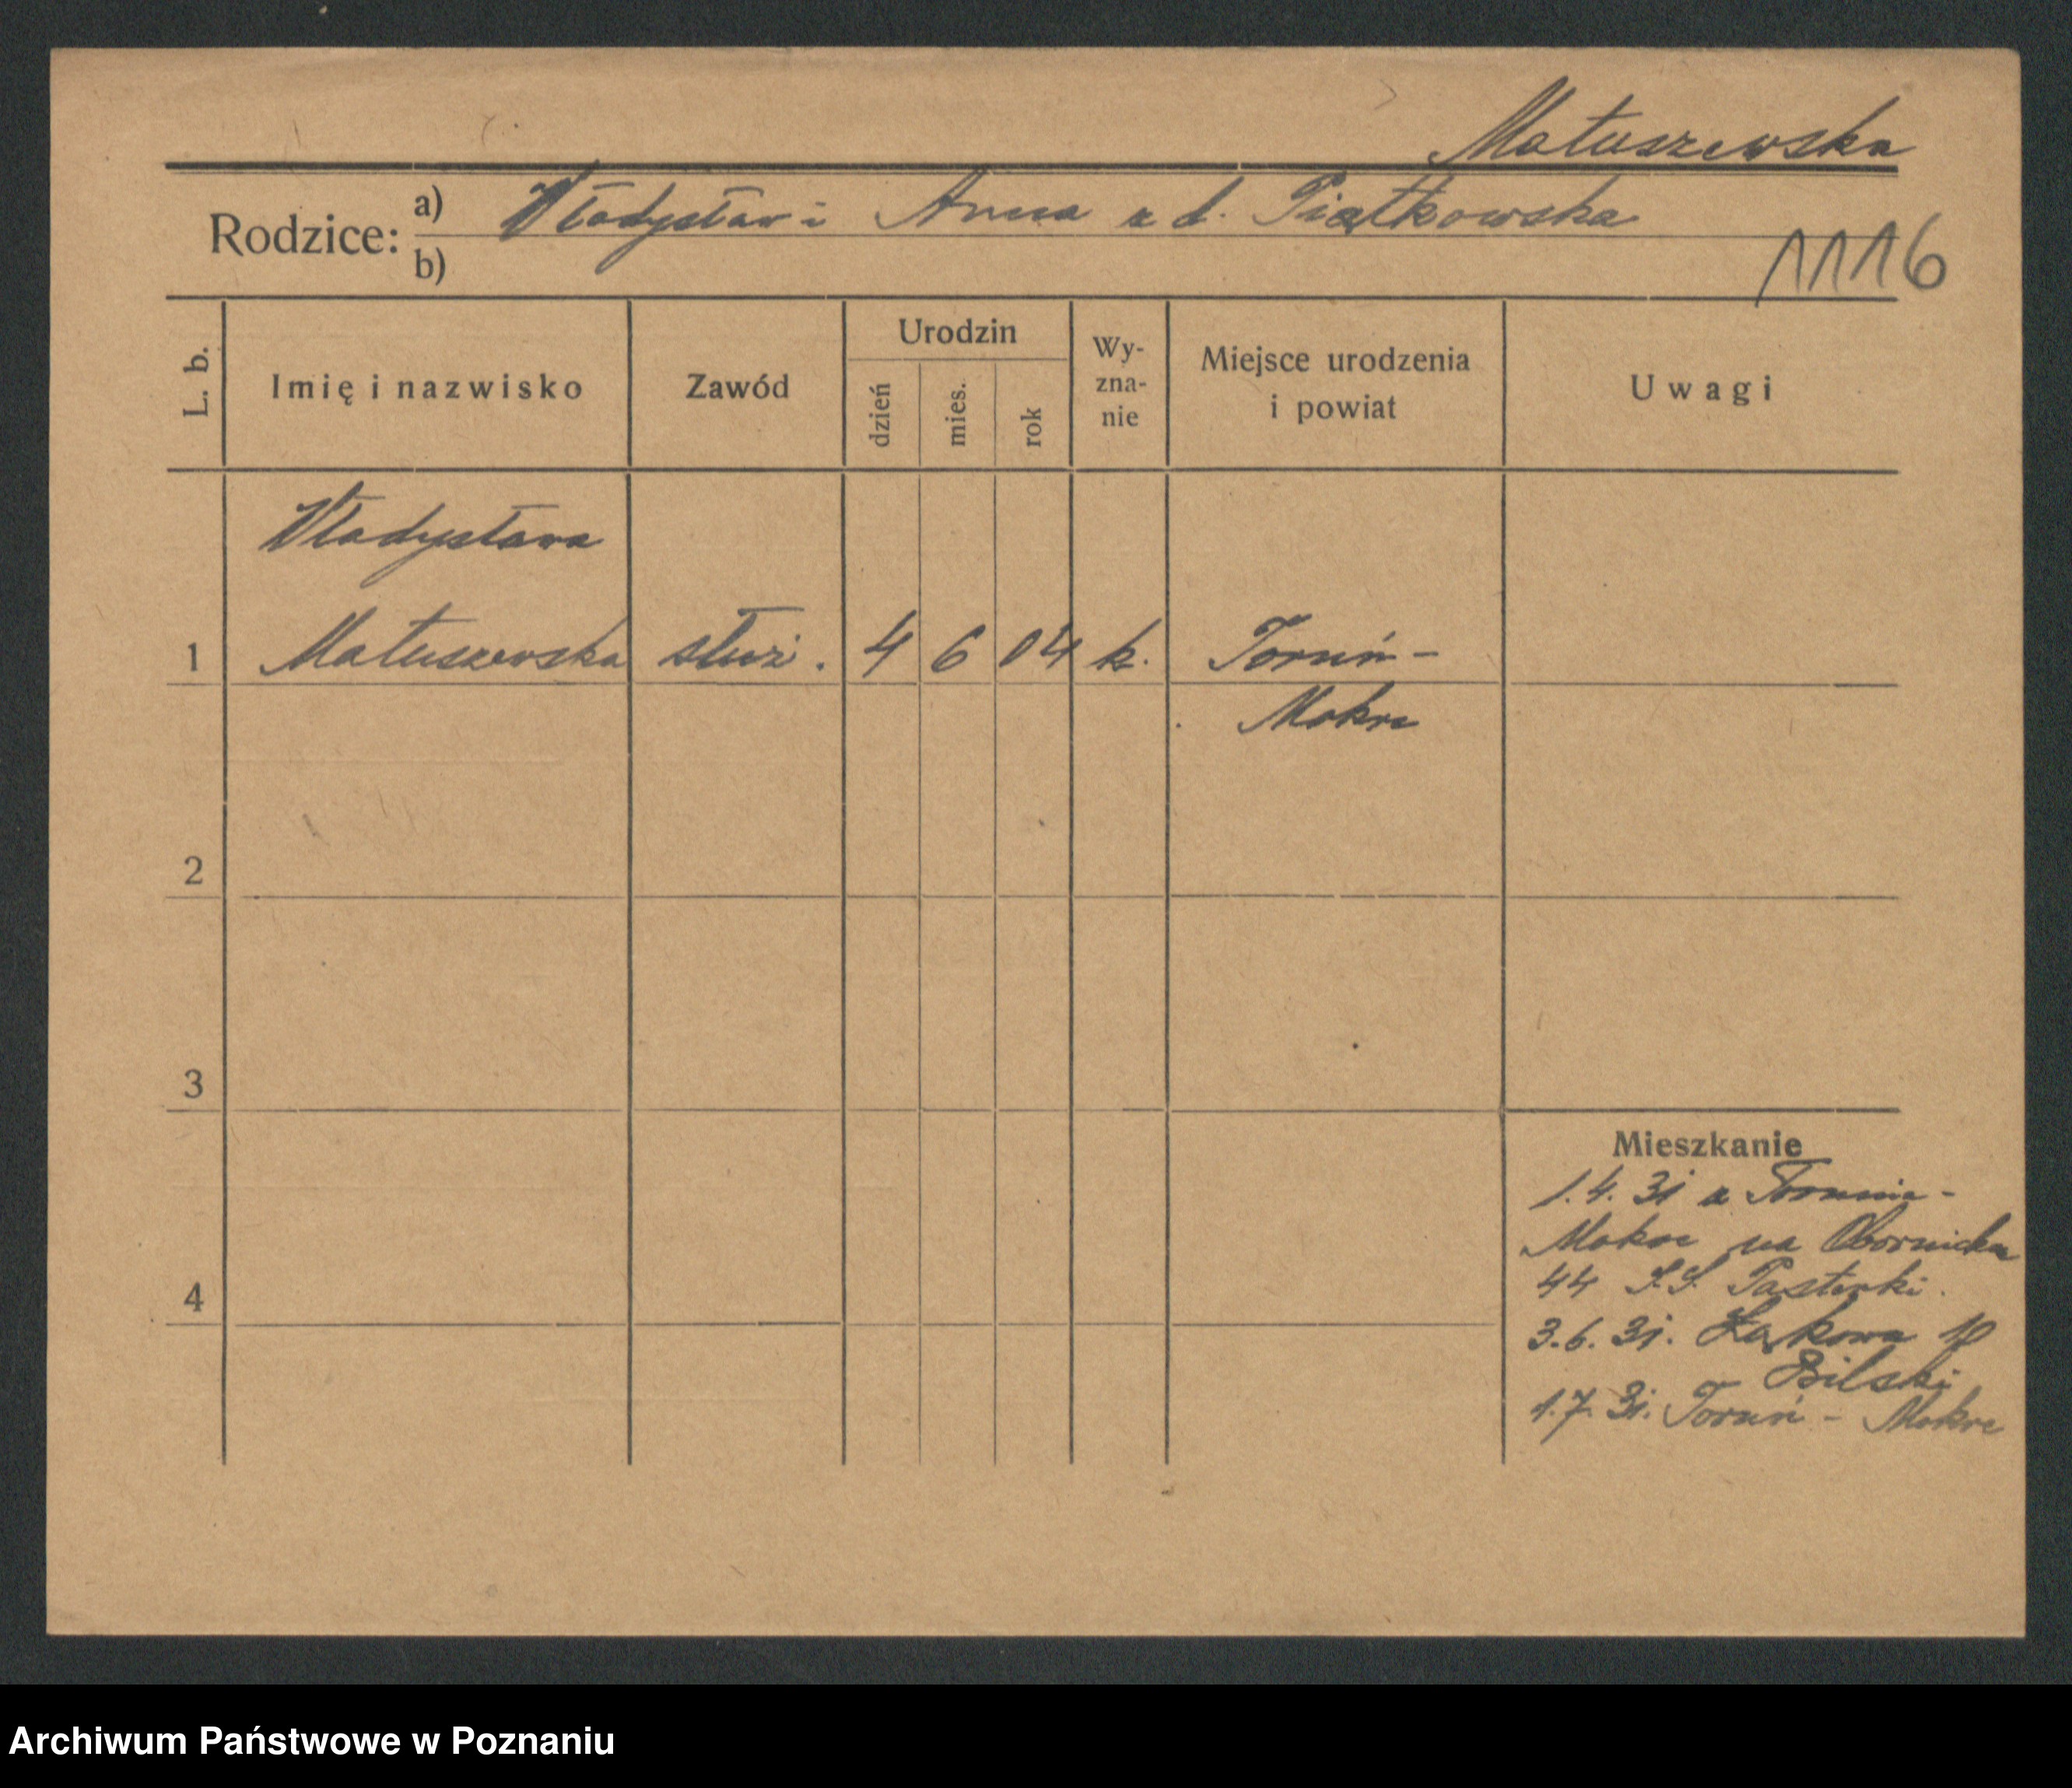 Matuszewska
Rodzice: a) Władysław i Anna z d. Piątkowska
b)
1116
L. b.
Imię i nazwisko
Zawód
Urodzin
dzień
mies.
rok
Wy-
zna-
nie
Miejsce urodzenia
i powiat
Uwagi
Władysława
1 Matuszewska służ. 4 6 04 k. Toruń-
Mokre
2
3
4
Mieszkanie
1.4.31 z Torunia-
Mokre na Obornicka
44 Pasterki.
3.6.31. Łąkowa 10
Bilski
1.7.31. Toruń - Mokre
Archiwum Państwowe w Poznaniu